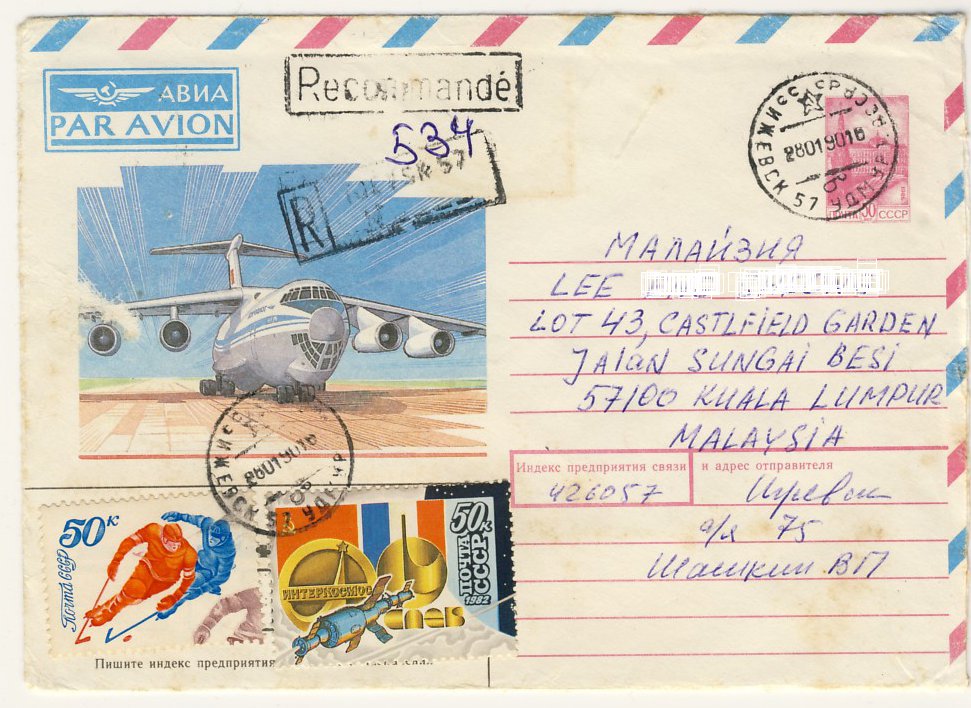 АВИА
PAR AVION
Recommandé
534
R
57
ИЖЕВСК 57 УДМ
280190 18
ПОЧТА 30 СССР
МАЛАЙЗИЯ
LEE
LOT 43, CASTLFIELD GARDEN
JALAN SUNGAI BESI
57100 KUALA LUMPUR
MALAYSIA
Индекс предприятия связи
и адрес отправителя
426057
Ижевск
а/я 75
Шашкин ВП
ИЖЕВСК 57
280190 18
50к
Почта СССР
50к
ПОЧТА
СССР
1982
ИНТЕРКОСМОС
Пишите индекс предприятия